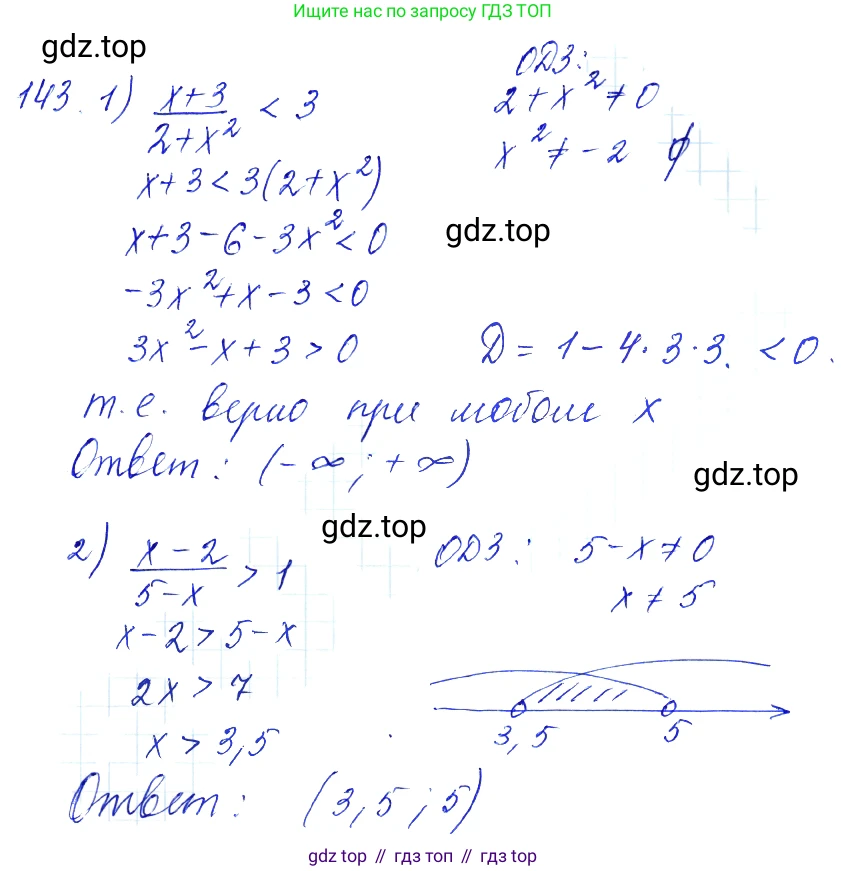 Ищите нас по запросу ГДЗ ТОП
gdz.top
143. 1) (x+3)/(2+x²) < 3
ОДЗ:
2+x² ≠ 0
x² ≠ -2 ∅
x+3 < 3(2+x²)
x+3-6-3x² < 0
gdz.top
-3x²+x-3 < 0
3x²-x+3 > 0 D = 1-4·3·3. < 0.
т.е. верно при любом x
Ответ: (-∞; +∞)
gdz.top
gdz.top
2) (x-2)/(5-x) > 1
ОДЗ: 5-x ≠ 0
x ≠ 5
x-2 > 5-x
2x > 7
x > 3,5
3,5 5
Ответ: (3,5; 5)
gdz top // гдз топ // gdz top